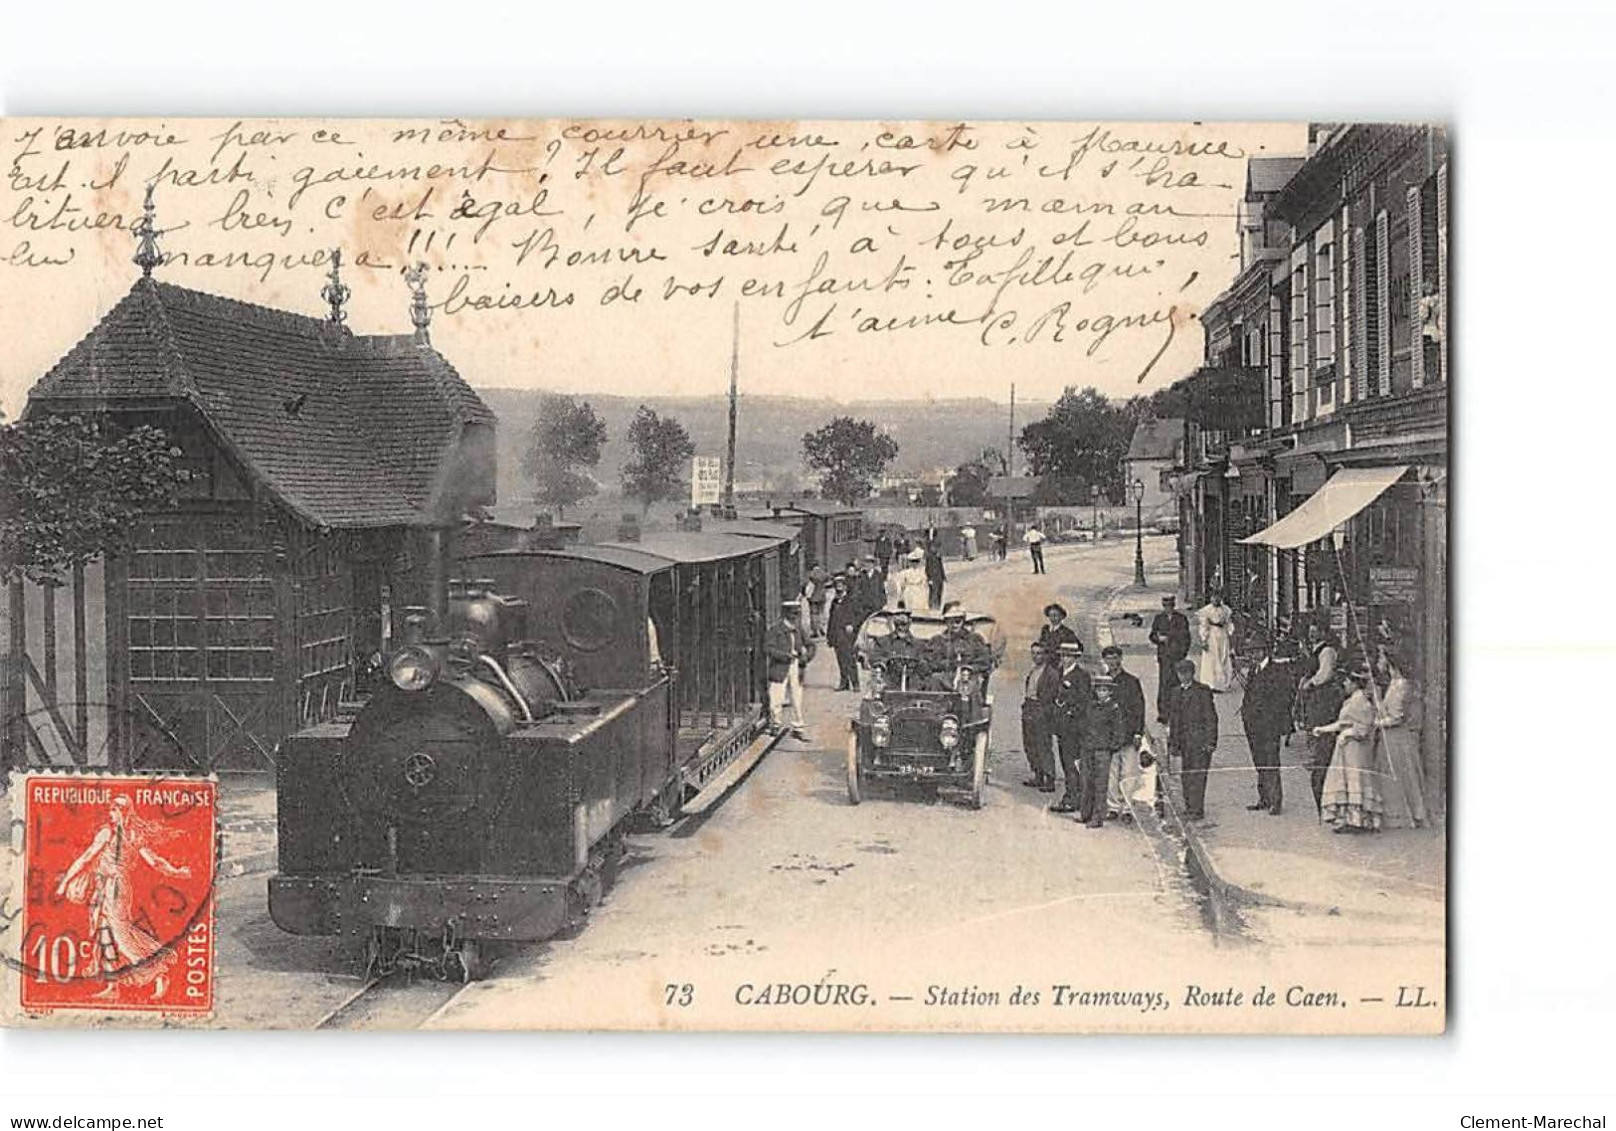 J'envoie par ce même courrier une carte à Maurice.
Est-il parti gaiement ? Il faut espérer qu'il s'ha
bituera bien. C'est égal, je crois que maman
lui manquera !!!.... Bonne santé à tous et bons
baisers de vos enfants. Ta fille qui
t'aime C. Rognié
REPUBLIQUE FRANÇAISE
10c
POSTES
CABO
73 CABOURG. — Station des Tramways, Route de Caen. — LL.
Clement-Marechal